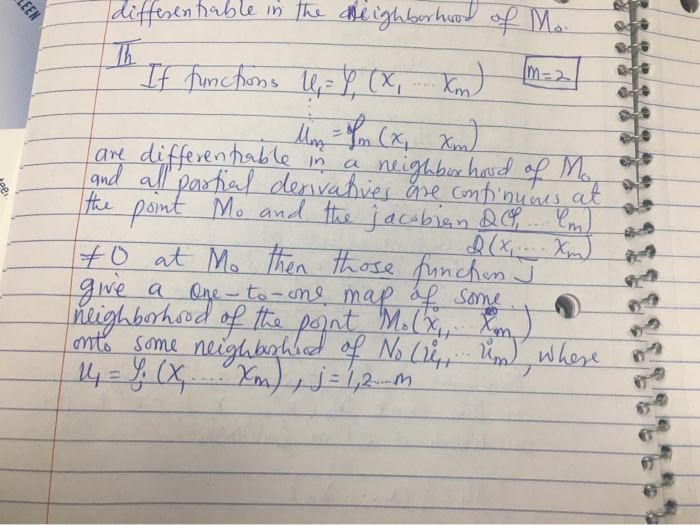 LEEN
differentiable in the neighborhood of M₀.
Th
If functions u₁ = φ₁ (x₁ .... xₘ) m=2
⋮
uₘ = φₘ (x₁ xₘ)
are differentiable in a neighborhood of M₀
and all partial derivatives are continuous at
the point M₀ and the jacobian D(φ₁ ... φₘ)
D(x₁ .... xₘ)
≠ 0 at M₀ then those functions
give a one-to-one map of some
neighborhood of the point M₀(x̊₁, ... x̊ₘ)
onto some neighborhood of N₀(ů₁, ... ůₘ), where
uⱼ = φⱼ (x₁ .... xₘ), j = 1,2...m